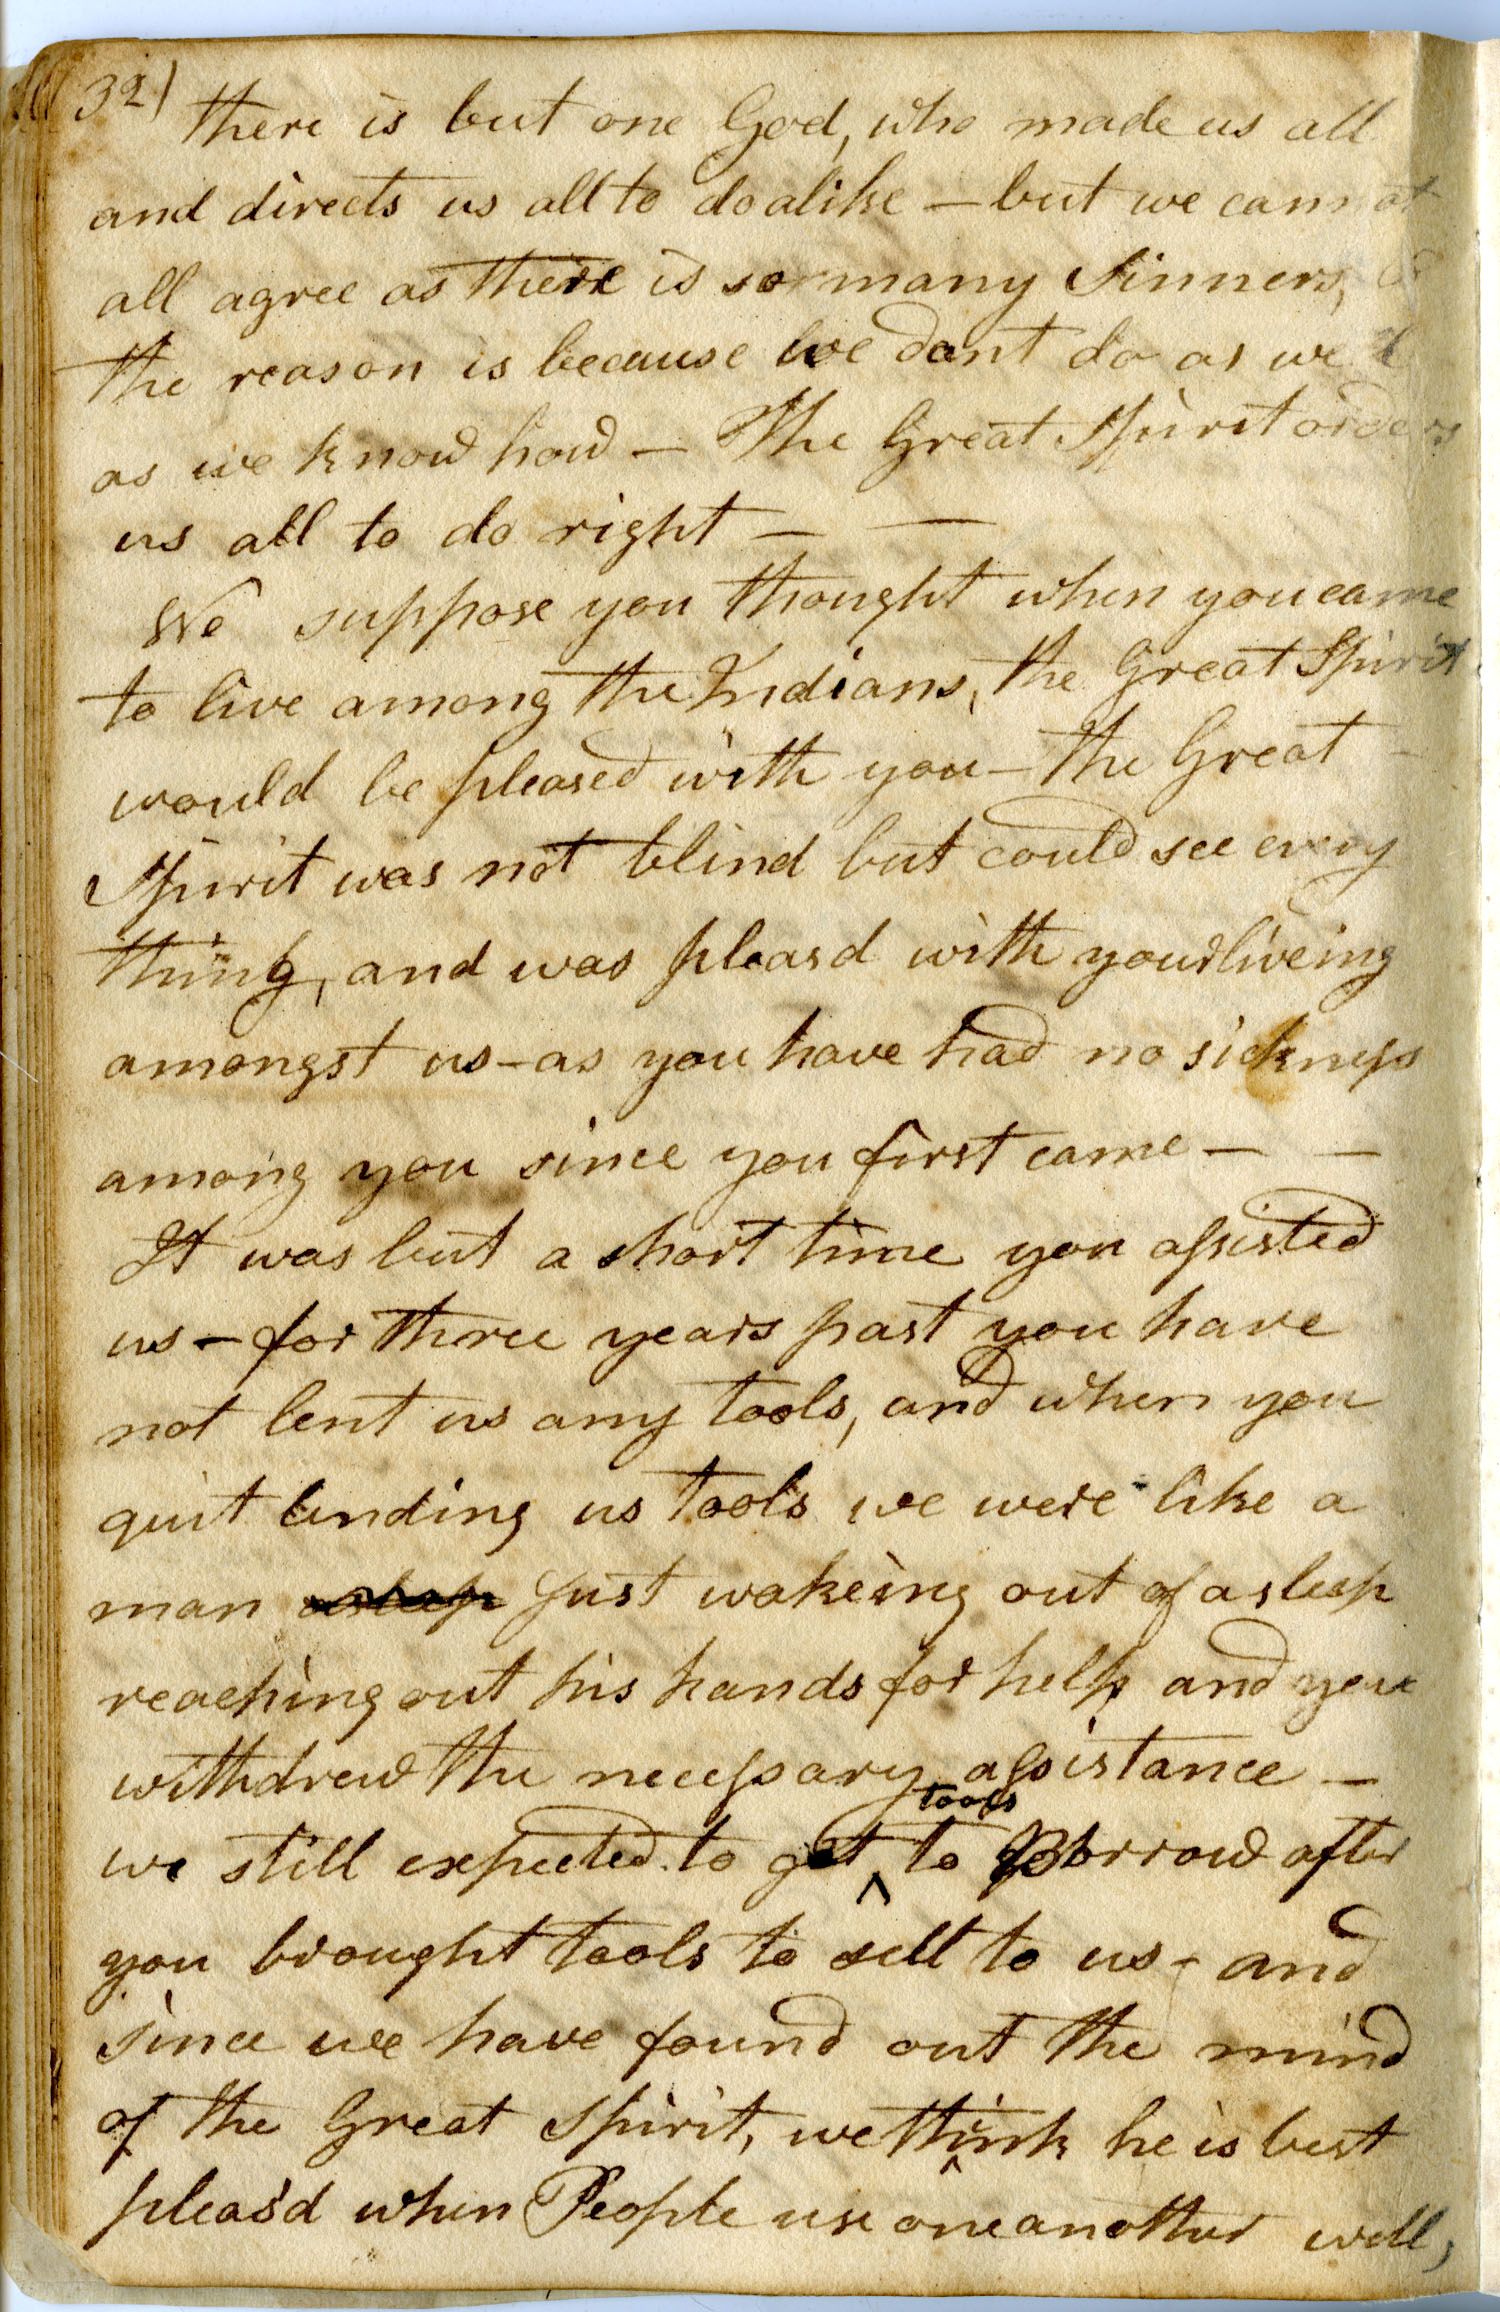 32)
there is but one God, who made us all
and directs us all to do alike — but we cannot
all agree as there is so many Sinners,
the reason is because we dont do as we
as we know how — The Great Spirit orders
us all to do right — —
We suppose you thought when you came
to live among the Indians, the Great Spirit
would be pleased with you — the Great
Spirit was not blind but could see every
thing, and was pleasd with your liveing
amongst us — as you have had no sickness
among you since you first came — —
It was but a short time you assisted
us — for three years past you have
not lent us any tools, and when you
quit lending us tools we were like a
man asleep just wakeing out of a sleep
reaching out his hands for help and you
withdrew the necessary assistance —
we still expected to get tools to Borrow after
you brought tools to sell to us — and
since we have found out the mind
of the Great Spirit, we think he is best
pleas'd when People use one another well,